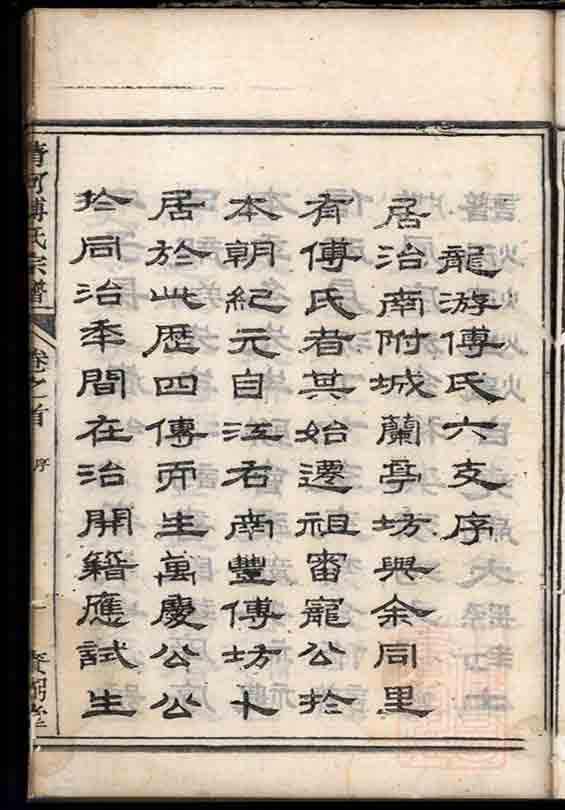 龍游傅氏六支序
居治南附城蘭亭坊與余同里
有傅氏者其始遷祖審寵公於
本朝紀元自江右南豐傅坊卜
居於此歷四傳而生萬慶公公
於同治季間在治開籍應試生
清河傅氏宗譜
卷之首
序